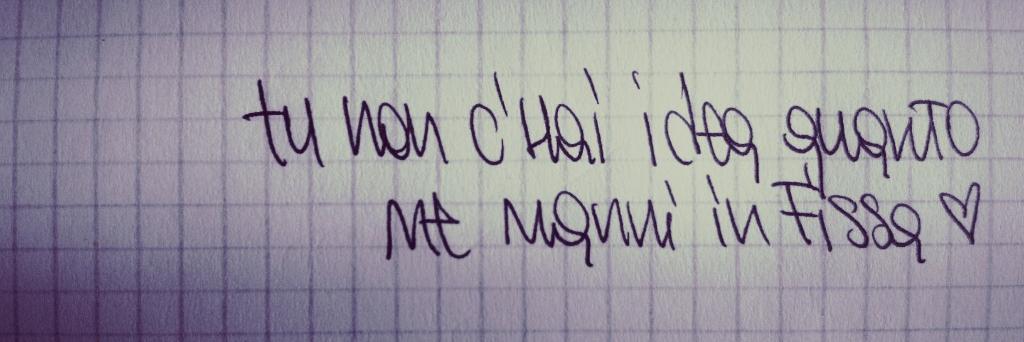 tu non c'hai idea quanto
me manni in fissa ♡